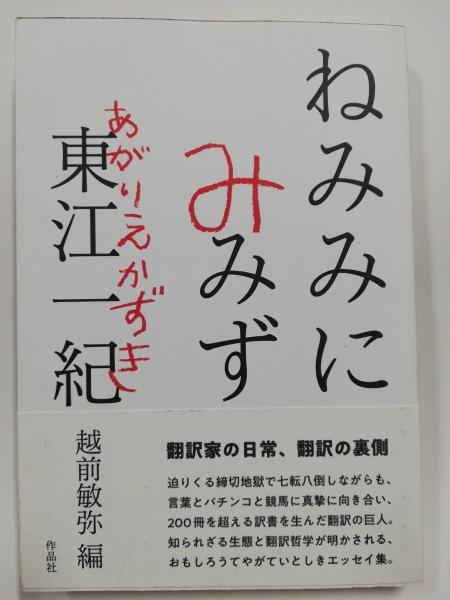 ねみみに
みみず
東江一紀
あがりえかずき
越前敏弥 編
作品社
翻訳家の日常、翻訳の裏側
迫りくる締切地獄で七転八倒しながらも、
言葉とパチンコと競馬に真摯に向き合い、
200冊を超える訳書を生んだ翻訳の巨人。
知られざる生態と翻訳哲学が明かされる、
おもしろうてやがていとしきエッセイ集。